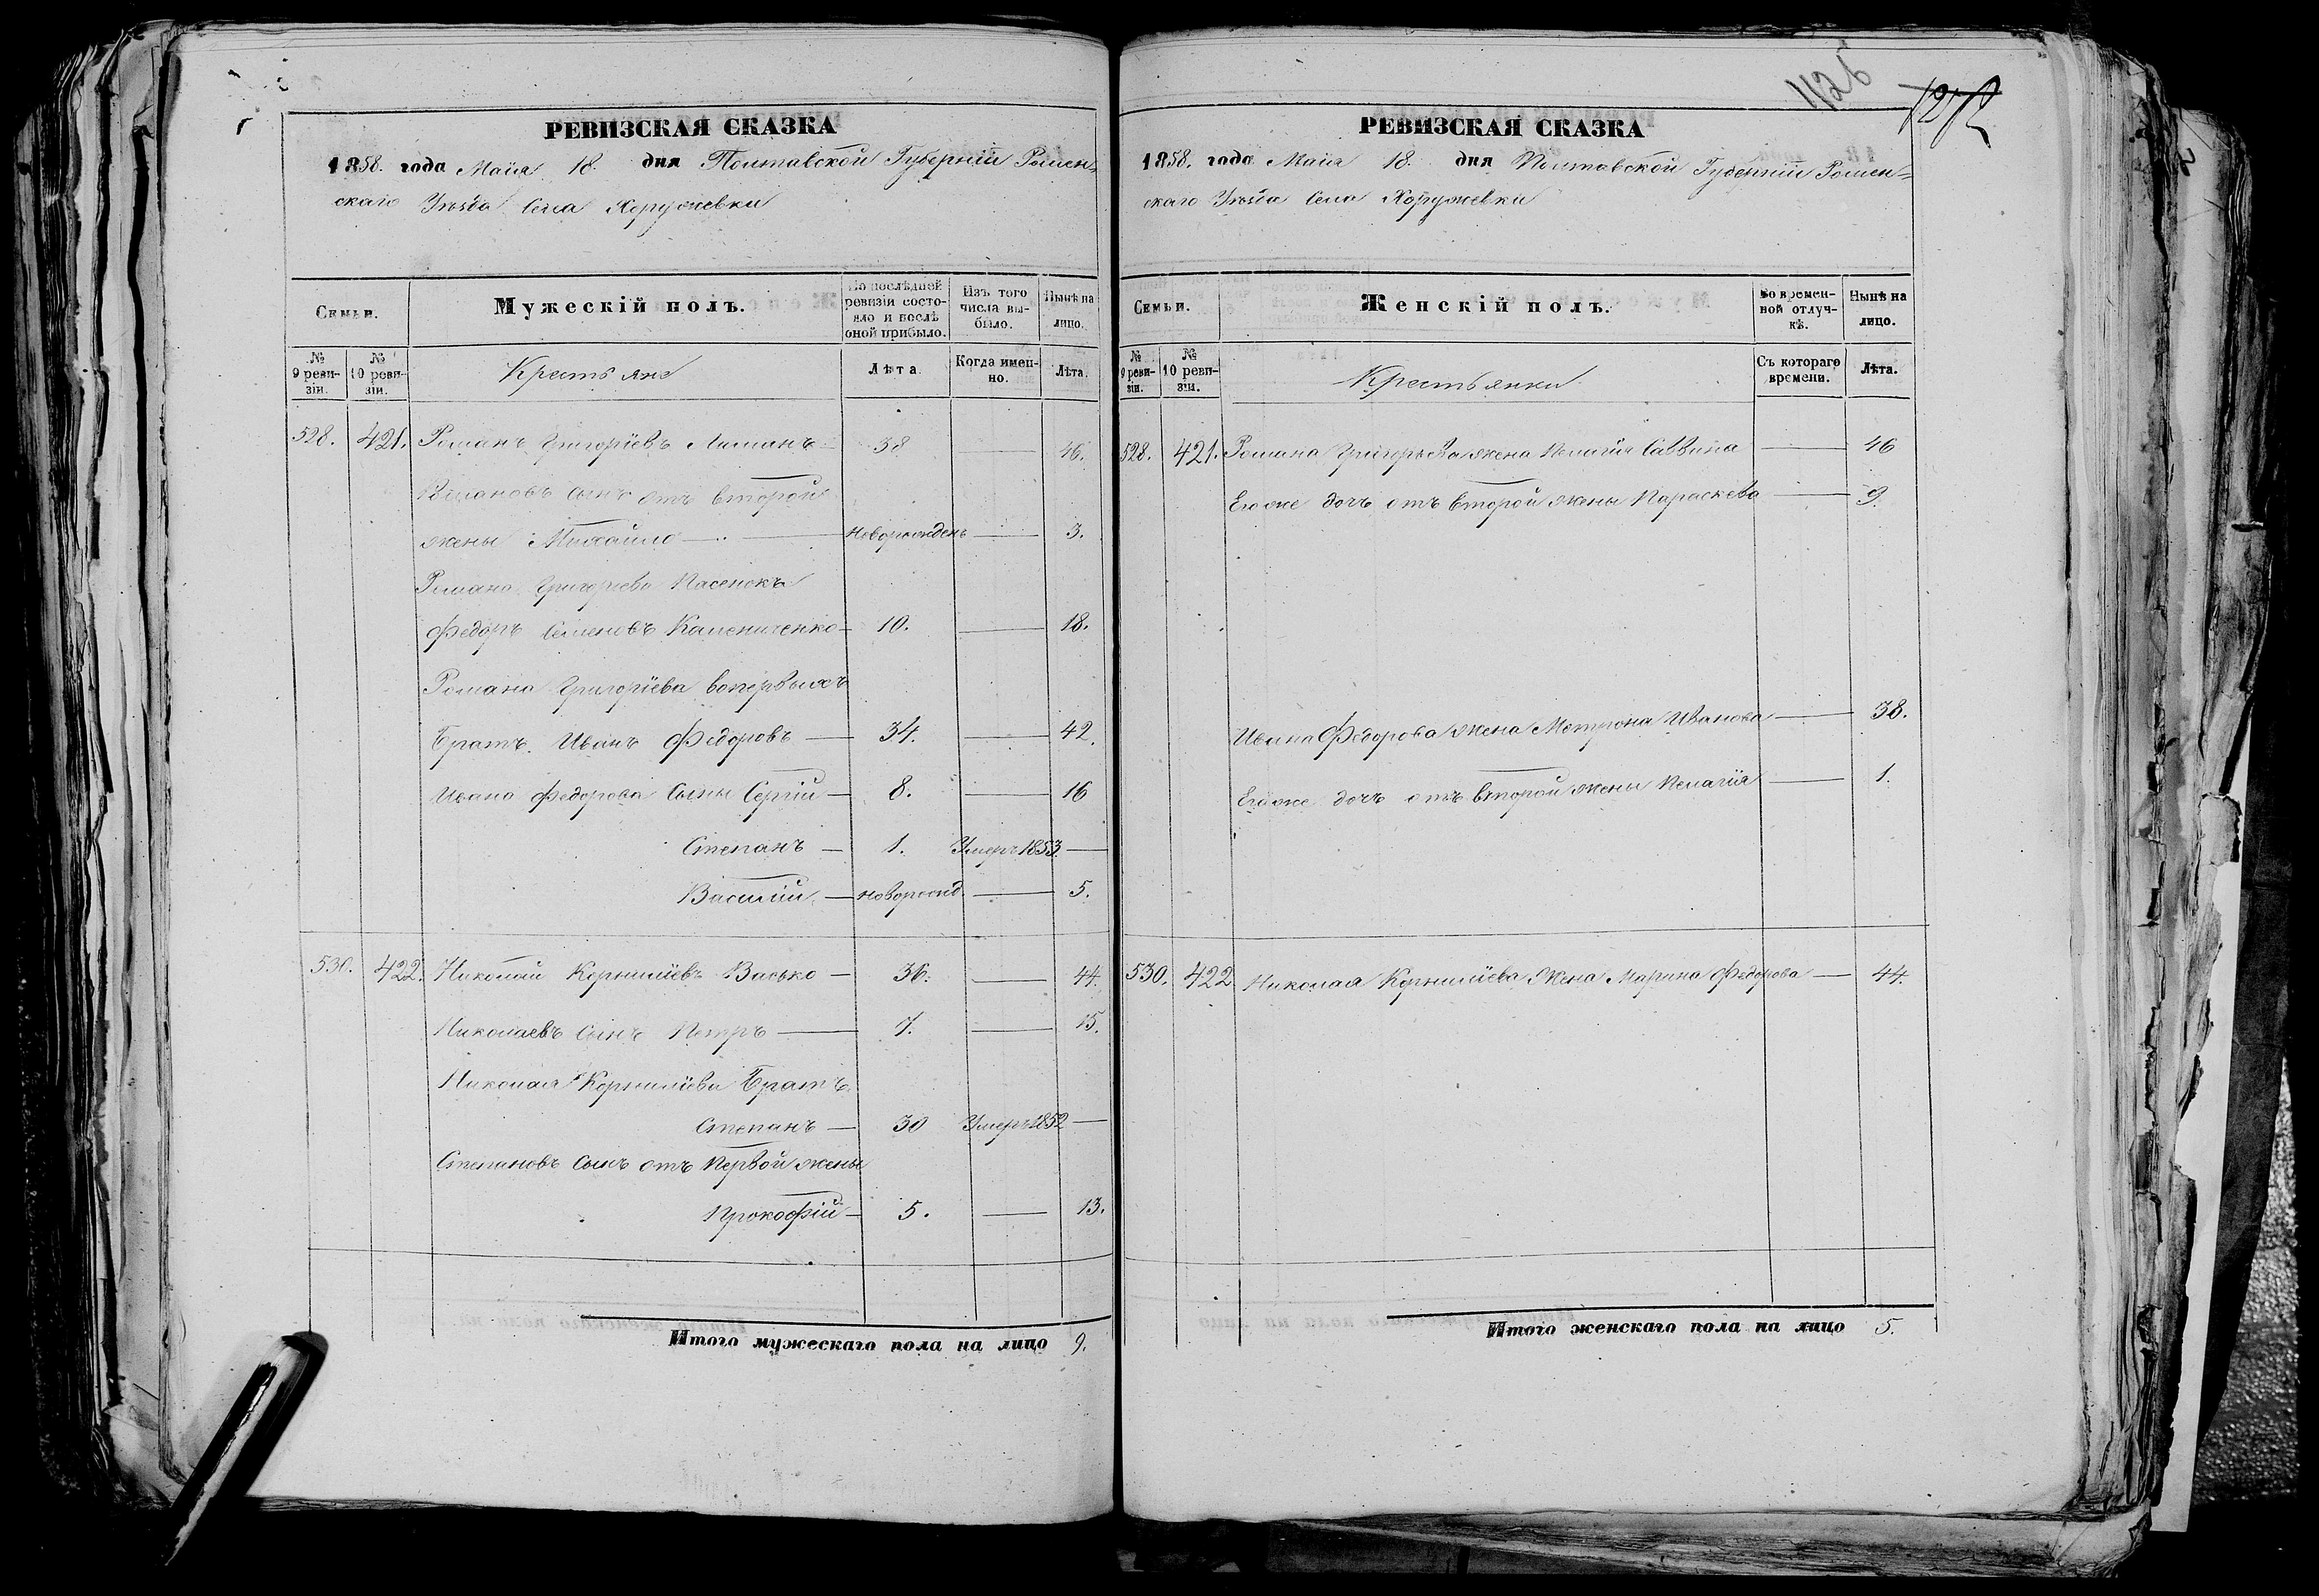 РЕВИЗСКАЯ СКАЗКА
1858. года Маия 18. дня Полтавской Губернiи Ромен-
скаго Уѣзда Села Хоружевки
Семьи.
Мужескiй полъ.
По послѣдней ревизiи состояло и послѣ оной прибыло.
Изъ того числа выбыло.
Нынѣ на лицо.
№ 9 ревизiи.
№ 10 ревизiи.
Крестьяне
Лѣта.
Когда именно.
Лѣта.
528. 421. Романъ Григорiевъ Лиманъ 38 — 46.
Романовъ сынъ отъ второй
жены Михайло — новорожденъ — 3.
Романа Григорiева Пасенокъ
Федоръ Семеновъ Камениченко — 10. — 18.
Романа Григорiева вопервыхъ
Братъ Иванъ Федоровъ — 34. — 42.
Ивана Федорова Сыны Сергiй — 8. — 16
Степанъ — 1. Умеръ 1853. —
Василiй — новорожд. — 5.
530. 422. Николай Корнилiевъ Васько — 36. — 44.
Николаевъ сынъ Петръ — 7. — 15.
Николая Корнилiева Братъ
Степанъ — 30 Умеръ 1852 —
Степановъ сынъ отъ первой жены
Прокофiй — 5. — 13.
Итого мужескаго пола на лицо 9.
426
РЕВИЗСКАЯ СКАЗКА
1858. года Маия 18. дня Полтавской Губернiи Ромен-
скаго Уѣзда Села Хоружевки
Семьи.
Женскiй полъ.
Во временной отлучкѣ.
Нынѣ на лицо.
№ 9 ревизiи.
№ 10 ревизiи.
Крестьянки
Съ котораго времени.
Лѣта.
528. 421. Романа Григорьева жена Пелагiя Саввина — 46
Егоже дочь отъ второй жены Параскева — 9.
Ивана Федорова жена Мотрона Иванова — 38.
Егоже дочь отъ второй жены Пелагiя — 1.
530. 422 Николая Корнилiева Жена Марина Федорова — 44.
Итого женскаго пола на лицо 5.